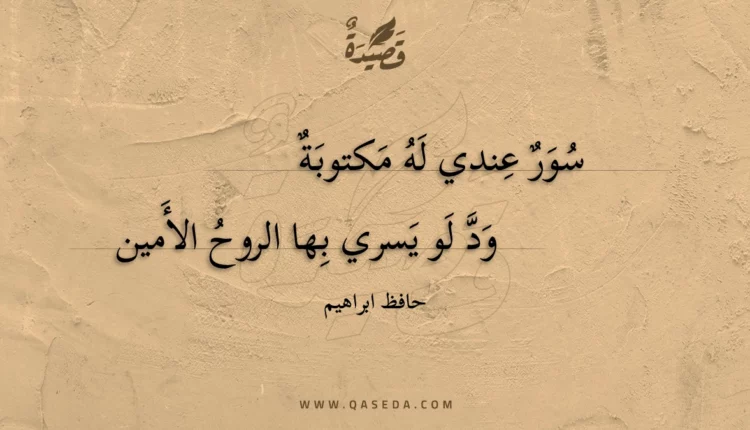 قَصِيدَةٌ
سُوَرٌ عِندي لَهُ مَكتوبَةٌ
وَدَّ لَو يَسري بِها الروحُ الأَمين
حافظ ابراهيم
WWW.QASEDA.COM